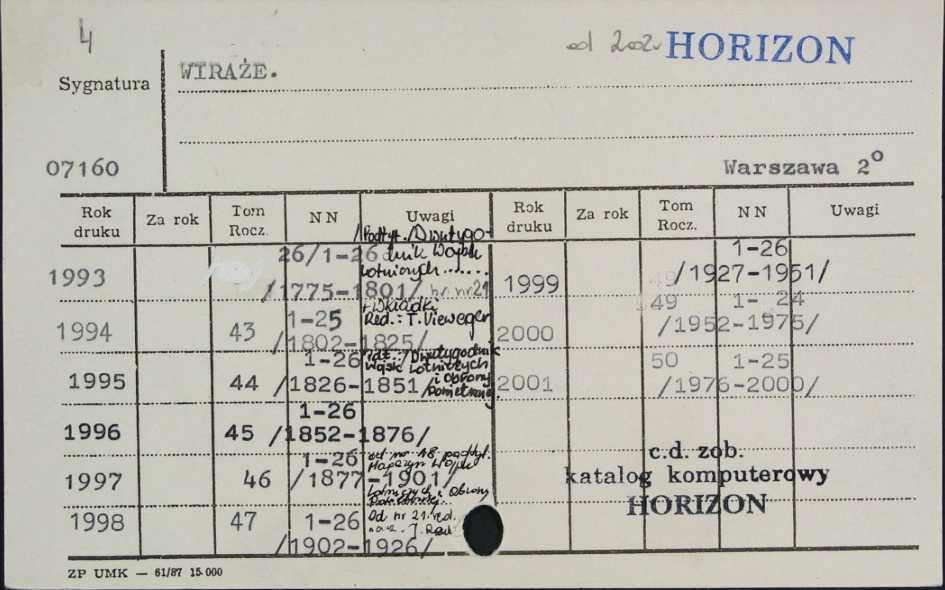 4
od 2002 HORIZON
Sygnatura WIRAŻE.
07160 Warszawa 2°
Rok druku Za rok Tom Rocz. NN Uwagi Rok druku Za rok Tom Rocz. NN Uwagi
1993 26/1-26 /1775-1801/ /Podtyt./Dwutygodnik Wojsk Lotniczych....... br. nr 21
1994 43 1-25 /1802-1825/ + Wkładki Red.: T. Vieweger
1995 44 1-26 /1826-1851/ /Dwutygodnik Wojsk Lotniczych i Obrony Powietrznej
1996 45 1-26 /1852-1876/
1997 46 1-26 /1877-1901/ od nr 18 podtyt. Magazyn Wojsk Lotniczych i Obrony
1998 47 1-26 /1902-1926/ Od nr 21 red.
1999 49 1-26 /1927-1951/
2000 49 1-24 /1952-1975/
2001 50 1-25 /1976-2000/
c.d. zob.
katalog komputerowy
HORIZON
ZP UMK — 61/87 15.000